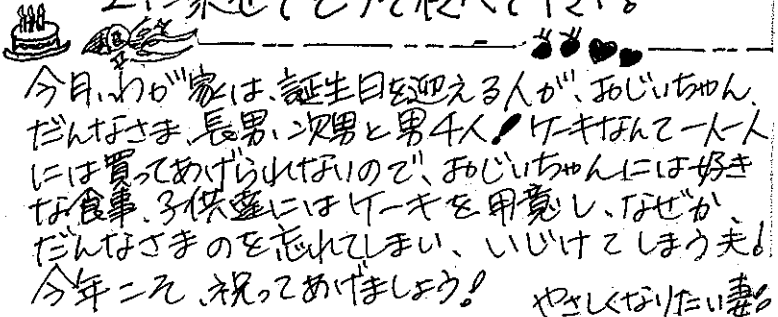 上に乗せてとって食べて下さい。
今月、わが家は、誕生日を迎える人が、おじいちゃん、
だんなさま、長男、次男と男4人!ケーキなんて一人一人
には買ってあげられないので、おじいちゃんには好き
な食事、子供達にはケーキを用意し、なぜか、
だんなさまのを忘れてしまい、いじけてしまう夫。
今年こそ、祝ってあげましょう!
やさしくなりたい妻。